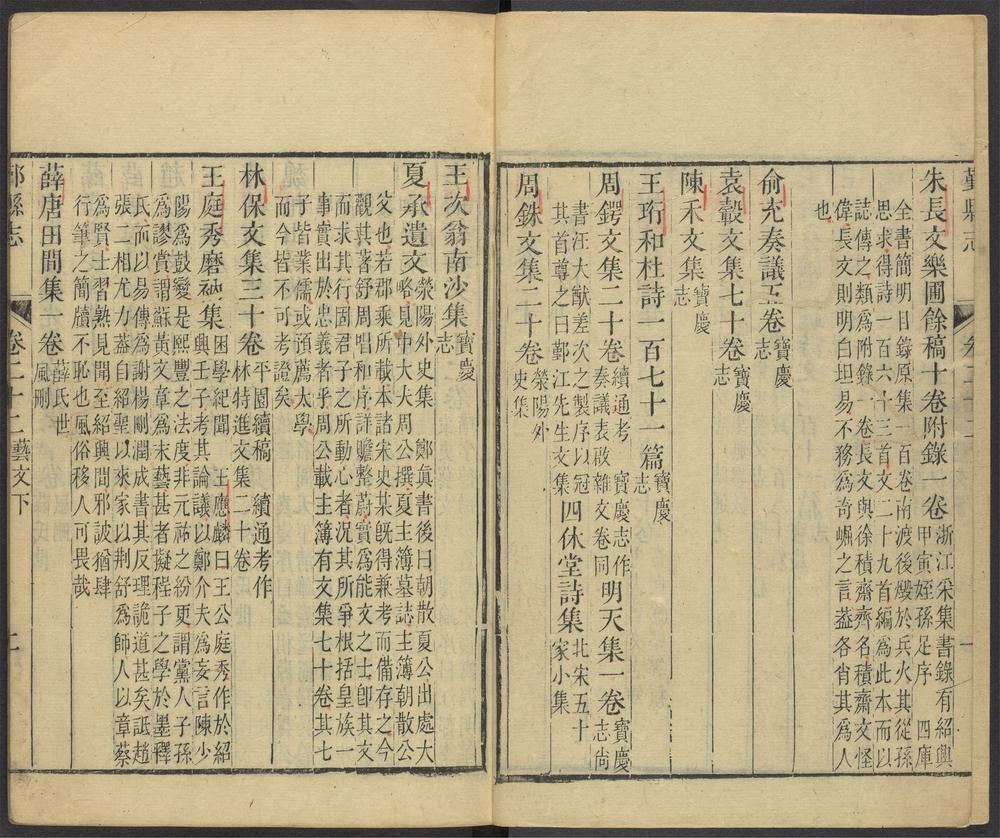 鄞縣志
朱長文樂圃餘稿十卷附錄一卷 浙江采集書錄有紹興甲寅姪孫足序 四庫
全書簡明目錄原集一百卷南渡後燬於兵火其從孫
思求得詩一百六十三首文二十九首編為此本而以
誌傳之類為附錄一卷長文與徐積齋齊名積齋文怪
偉長文則明白坦易不務為奇崛之言葢各肖其為人
也
俞充奏議五卷 寶慶志
袁轂文集七十卷 寶慶志
陳禾文集 寶慶志
王珩和杜詩一百七十一篇 寶慶志
周鍔文集二十卷 續通考 寶慶志作周奏議表啟雜文卷同 明天集一卷 寶慶志尙
書汪大猷差次之製序以冠
其首尊之曰鄞江先生文集 四休堂詩集 北宋五十家小集
周銖文集二十卷 滎陽外史集
王次翁南沙集 寶慶志
夏承遺文略 滎陽外史集 鄭眞書後曰朝散夏公出處大
見中大夫周公撰夏主簿墓誌主簿朝散公
父也若郡乘所載本諸宋史某旣得兼考而備存之今
觀其著舒周唱和序詳贍整蔚實為能文之士卽其文
而求其行固君子之所動心者況其所爭根括皇族一
事實出於忠義者乎周公載主簿有文集七十卷其七
子皆業儒或預薦太學
而今皆不可考證矣
林保文集三十卷 平園續稿 續通考作林特進文集二十卷
王庭秀磨衲集 困學紀聞 王應麟曰王公庭秀作於紹
興王子考其論議以鄭介夫為妄言陳少
陽為鼓變是熙豐之法度非元祐之紛更謂黨人子孫
為謬賞謂蘇黃文章為末藝甚者擬程子之學於墨釋
氏而以易傳為謝楊剛潤成書其反理詭道甚矣詆趙
張二相尤力葢自紹聖以來家以荆舒為師人以章蔡
為賢士習熟見聞至紹興間邪詖猶肆
行筆之簡牘不恥也風俗移人可畏哉
薛唐田間集一卷 薛氏世風刪
鄞縣志 卷二十二 藝文下